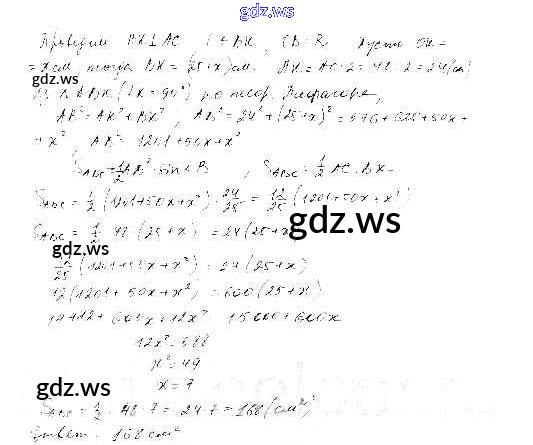 gdz.ws
Проведем HK⊥AC
= x см, тогда BK = (25+x) см. AK = AC : 2 = 48 : 2 = 24 (см)
gdz.ws
Из △ABK (∠K = 90°) по теор. Пифагора,
AB² = AK² + BK², AB² = 24² + (25+x)² = 576 + 625 + 50x +
+ x², AB² = 1201 + 50x + x²
S_ABC = 1/2 AB² · sin∠B, S_ABC = 1/2 AC · BK =
S_ABC = 1/2 (1201+50x+x²) · 24/25 = 12/25 (1201+50x+x²)
gdz.ws
S_ABC = 1/2 · 48 · (25+x) = 24(25+x)
gdz.ws
12/25 (1201+50x+x²) = 24(25+x)
12(1201+50x+x²) = 600(25+x)
14412 + 600x + 12x² = 15000 + 600x
12x² = 588
x² = 49
x = 7
gdz.ws
S_ABC = 1/2 · 48 · 7 = 24 · 7 = 168 (см²)
Ответ: 168 см²